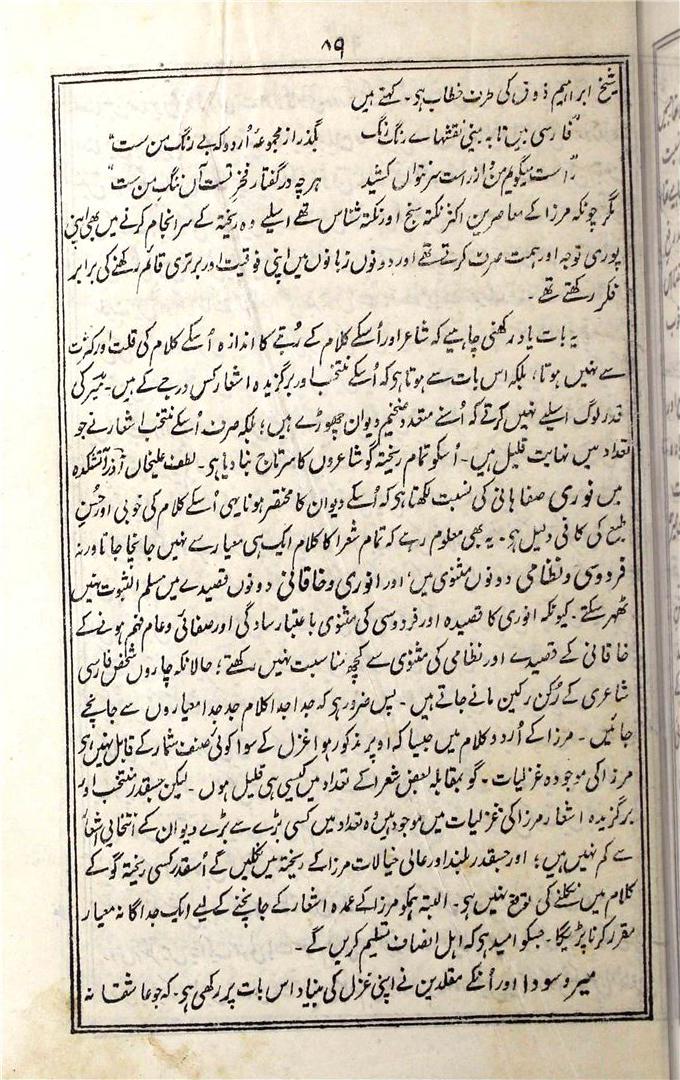 ۸۹
شیخ ابراہیم ذوق کی طرف خطاب ہو۔ کہتے ہیں
"فارسی بیں تا بہ بینی نقشہاے رنگ رنگ بگذر از مجموعۂ اُردو کہ بے رنگِ من ست"
"راست میگویم من و از راست سر نتواں کشید ہرچہ در گفتار فخرِ تست آں ننگِ من ست"
مگر چونکہ مرزا کے معاصرین اکثر نکتہ سنج اور نکتہ شناس تھے اسلیے وہ ریختہ کے سرانجام کرنے میں بھی اپنی
پوری توجہ اور ہمت صرف کرتے تھے اور دونوں زبانوں میں اپنی فوقیت اور برتری قائم رکھنے کی برابر
فکر رکھتے تھے۔
یہ بات یاد رکھنی چاہیے کہ شاعر اور اُسکے کلام کے رتبے کا اندازہ اُسکے کلام کی قلت اور کثرت
سے نہیں ہوتا؛ بلکہ اس بات سے ہوتا ہو کہ اُسکے منتخب اور برگزیدہ اشعار کس درجے کے ہیں۔ میر کی
قدر لوگ اسلیے نہیں کرتے کہ اُسنے متعدد ضخیم دیوان چھوڑے ہیں؛ بلکہ صرف اُسکے منتخب اشعار نے جو
تعداد میں نہایت قلیل ہیں۔ اُسکو تمام ریختہ گو شاعروں کا سرتاج بنا دیا ہو۔ لطف علیخاں آذر آتشکدہ
میں نوری صفاہانی کی نسبت لکھتا ہو کہ اُسکے دیوان کا مختصر ہونا یہی اُسکے کلام کی خوبی اور حُسنِ
طبع کی کافی دلیل ہو۔ یہ بھی معلوم رہے کہ تمام شعرا کا کلام ایک ہی معیار سے نہیں جانچا جاتا ورنہ
فردوسی و نظامی دونوں مثنوی میں، اور انوری و خاقانی دونوں قصیدے میں مسلم الثبوت نہیں
ٹھہر سکتے۔ کیونکہ انوری کا قصیدہ اور فردوسی کی مثنوی باعتبار سادگی اور صفائی و عام فہم ہونے کے
خاقانی کے قصیدے اور نظامی کی مثنوی سے کچھ مناسبت نہیں رکھتے؛ حالانکہ چاروں شخص فارسی
شاعری کے رُکنِ رکین مانے جاتے ہیں۔ پس ضرور ہو کہ جدا جدا کلام جدا جدا معیاروں سے جانچے
جائیں۔ مرزا کے اُردو کلام میں جیسا کہ اوپر مذکور ہوا غزل کے سوا کوئی صنف شمار کے قابل نہیں ہو
مرزا کی موجودہ غزلیات۔ گو بمقابلہ بعض شعرا کے تعداد میں کیسی ہی قلیل ہوں۔ لیکن جسقدر منتخب اور
برگزیدہ اشعار مرزا کی غزلیات میں موجود ہیں وہ تعداد میں کسی بڑے سے بڑے دیوان کے انتخابی اشعار
سے کم نہیں ہیں؛ اور جسقدر بلند اور عالی خیالات مرزا کے ریختہ میں نکلیں گے اُسقدر کسی ریختہ گو کے
کلام میں نکلنے کی توقع نہیں ہو۔ البتہ ہمکو مرزا کے عمدہ اشعار کے جانچنے کے لیے ایک جداگانہ معیار
مقرر کرنا پڑیگا۔ جسکو امید ہو کہ اہل انصاف تسلیم کریں گے۔
میر و سودا اور اُنکے مقلدین نے اپنی غزل کی بنیاد اس بات پر رکھی ہو۔ کہ جو عاشقانہ